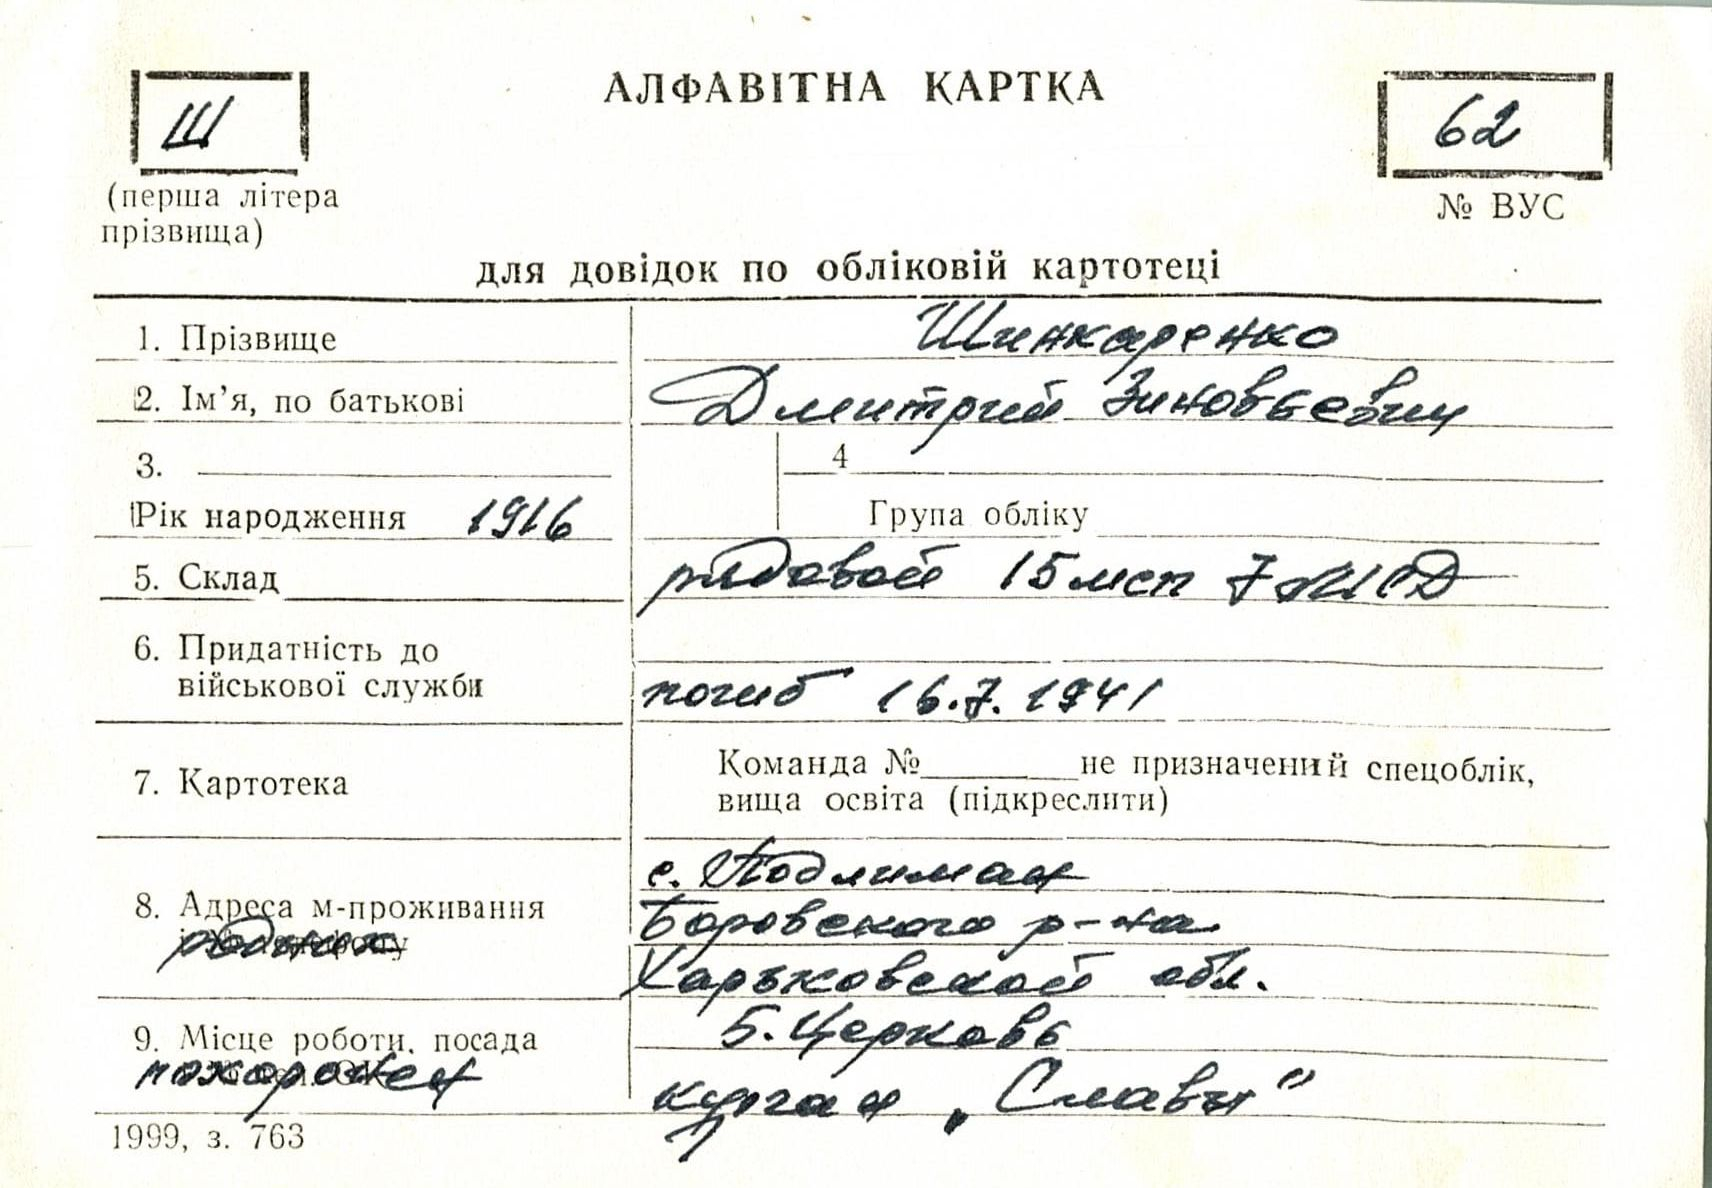 АЛФАВІТНА КАРТКА
Ш
62
(перша літера
прізвища)
№ ВУС
для довідок по обліковій картотеці
1. Прізвище Шинкаренко
2. Ім’я, по батькові Дмитрий Зиновьевич
3. 4
Рік народження 1916 Група обліку
5. Склад рядовой 15 мсп 7 МСД
6. Придатність до
військової служби погиб 16.7.1941
7. Картотека
Команда №______не призначений спецоблік,
вища освіта (підкреслити)
с. Подлиман
8. Адреса м-проживання Боровского р-на
родных
Харьковской обл.
Б. Церковь
9. Місце роботи, посада
похоронен курган „Славы"
1999, з. 763